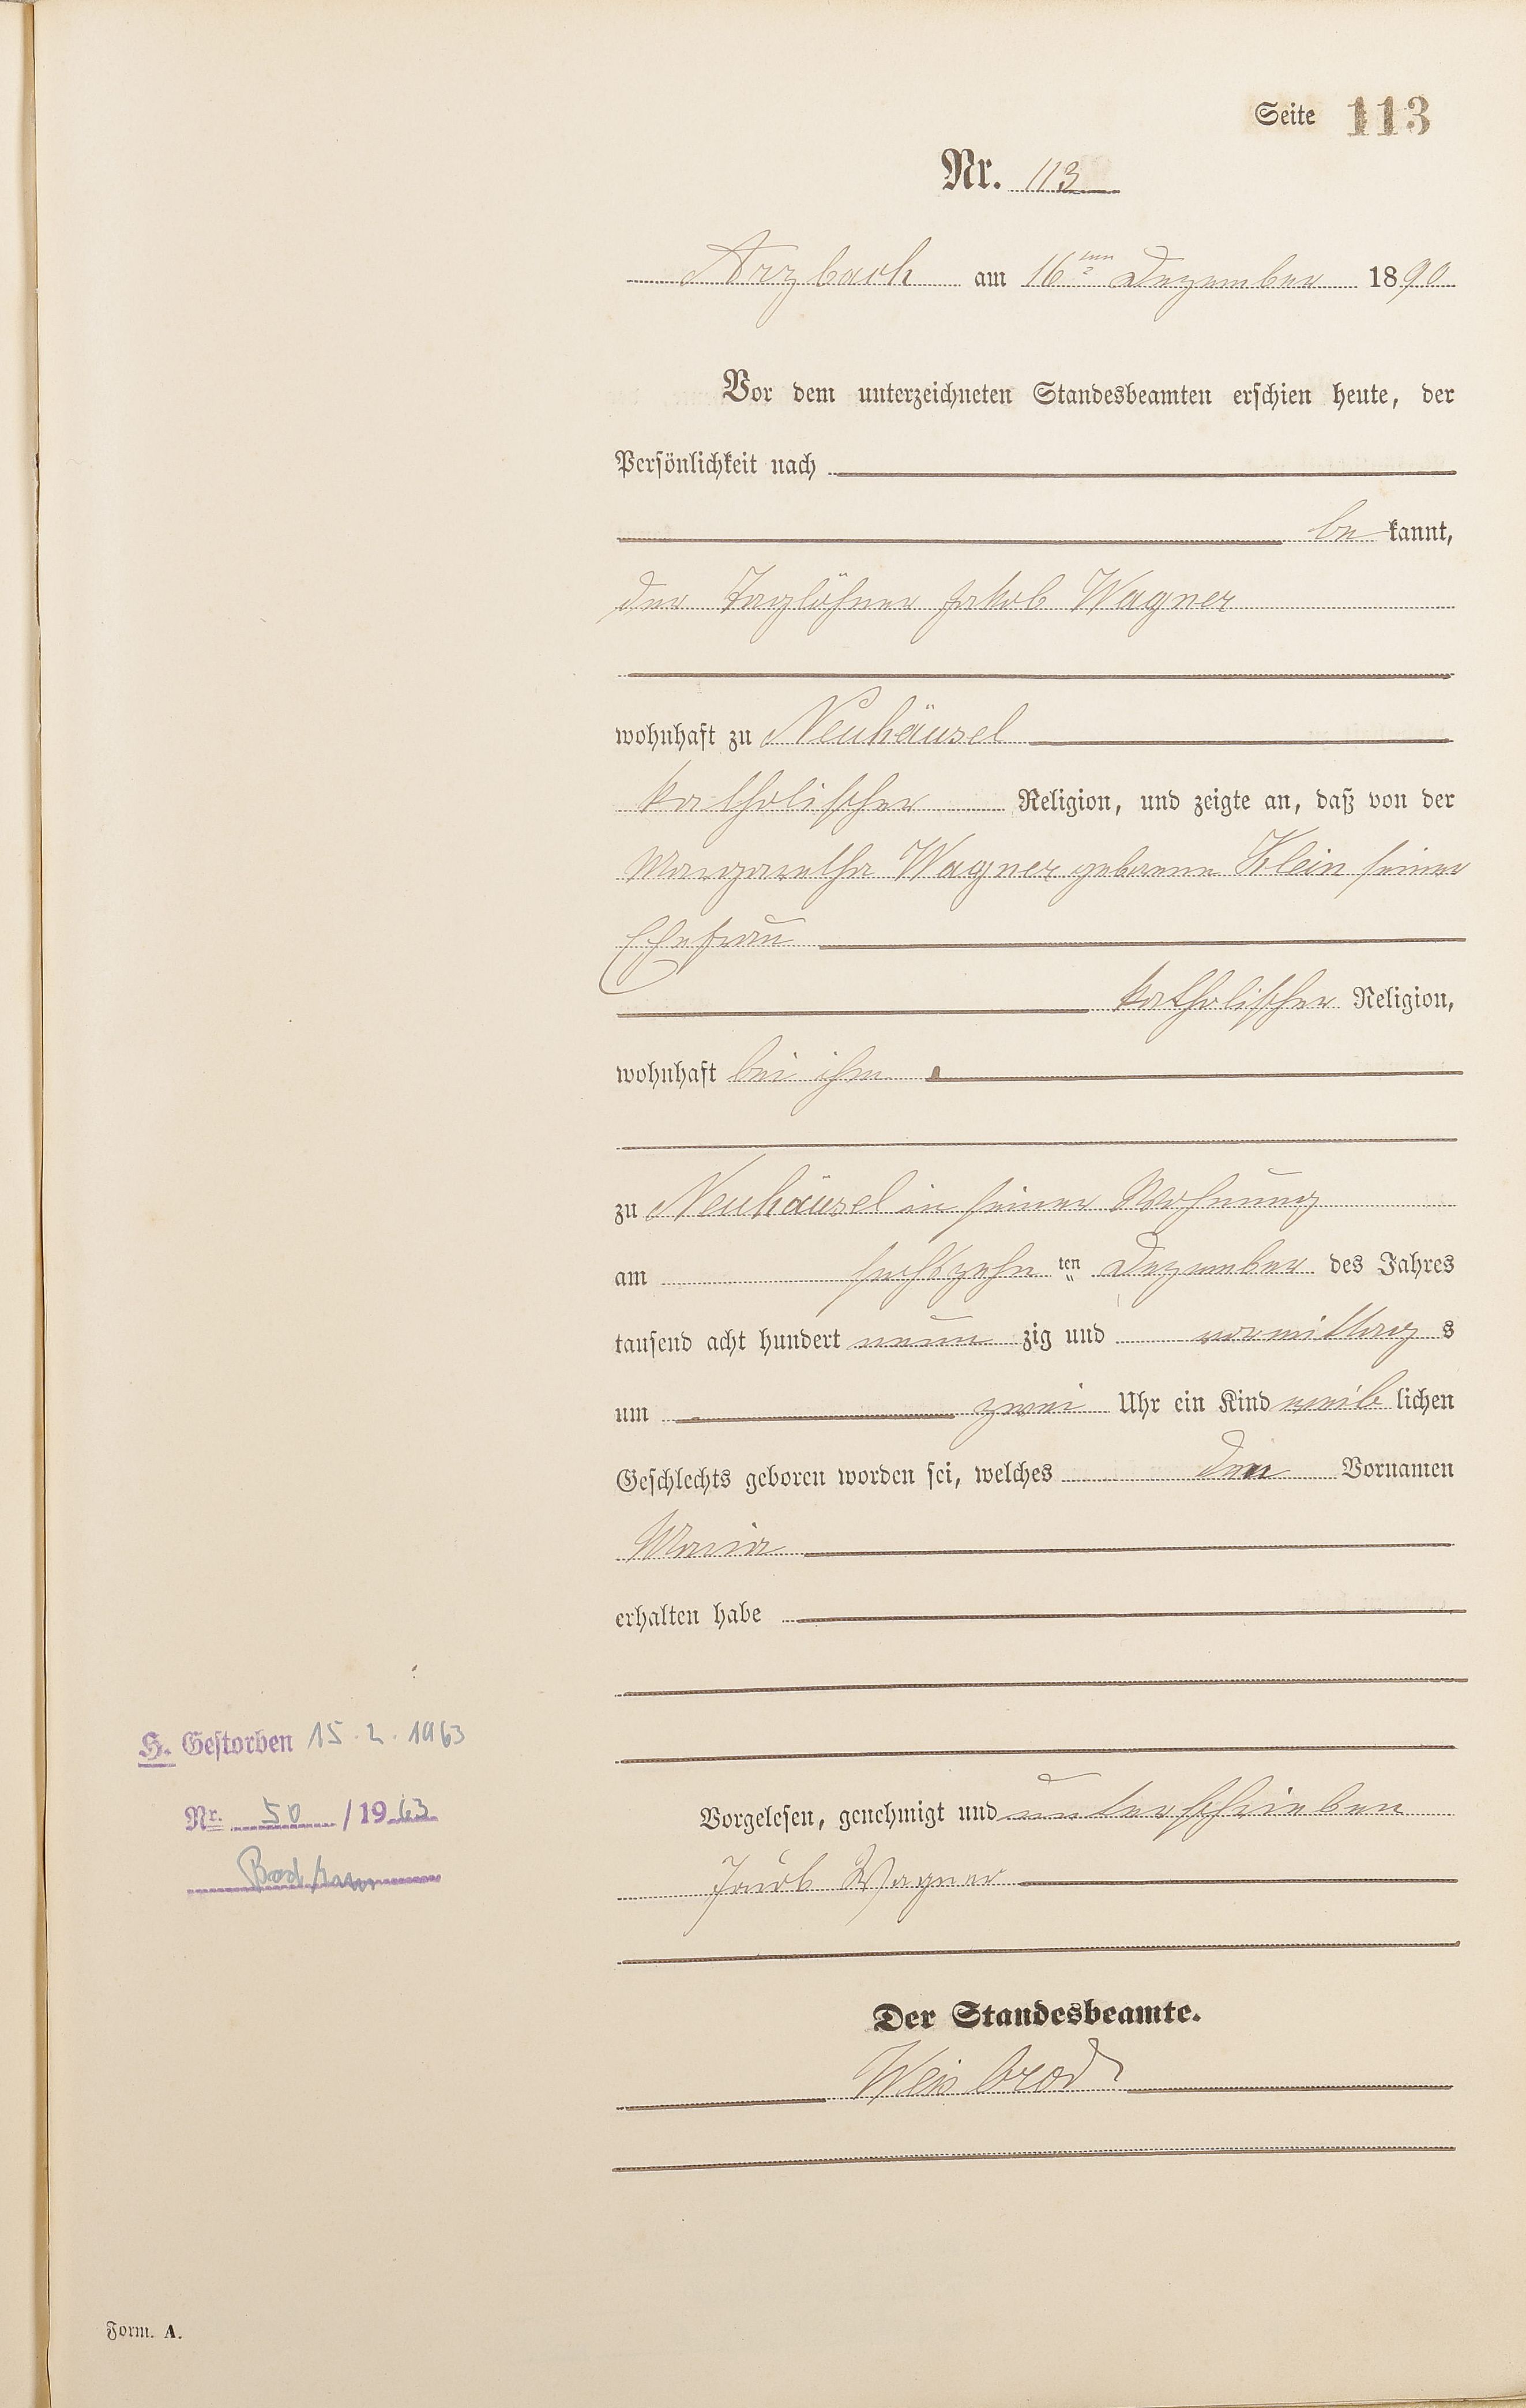 Seite 113
Nr. 113
Arzbach am 16ten Dezember 1890
Vor dem unterzeichneten Standesbeamten erschien heute, der
Persönlichkeit nach
be kannt,
der Taglöhner Jakob Wagner
wohnhaft zu Neuhäusel
katholischer Religion, und zeigte an, daß von der
Margaretha Wagner geborene Klein seiner
Ehefrau
katholischer Religion,
wohnhaft bei ihm
zu Neuhäusel in seiner Wohnung
am sechszehn ten Dezember des Jahres
tausend acht hundert neun zig und vormittag s
um zwei Uhr ein Kind weib lichen
Geschlechts geboren worden sei, welches den Vornamen
Maria
erhalten habe
H. Gestorben 15.2.1963
Nr. 50 / 1963
Bad Ems
Vorgelesen, genehmigt und unterschrieben
Jacob Wagner
Der Standesbeamte.
Weisbrod
Form. A.